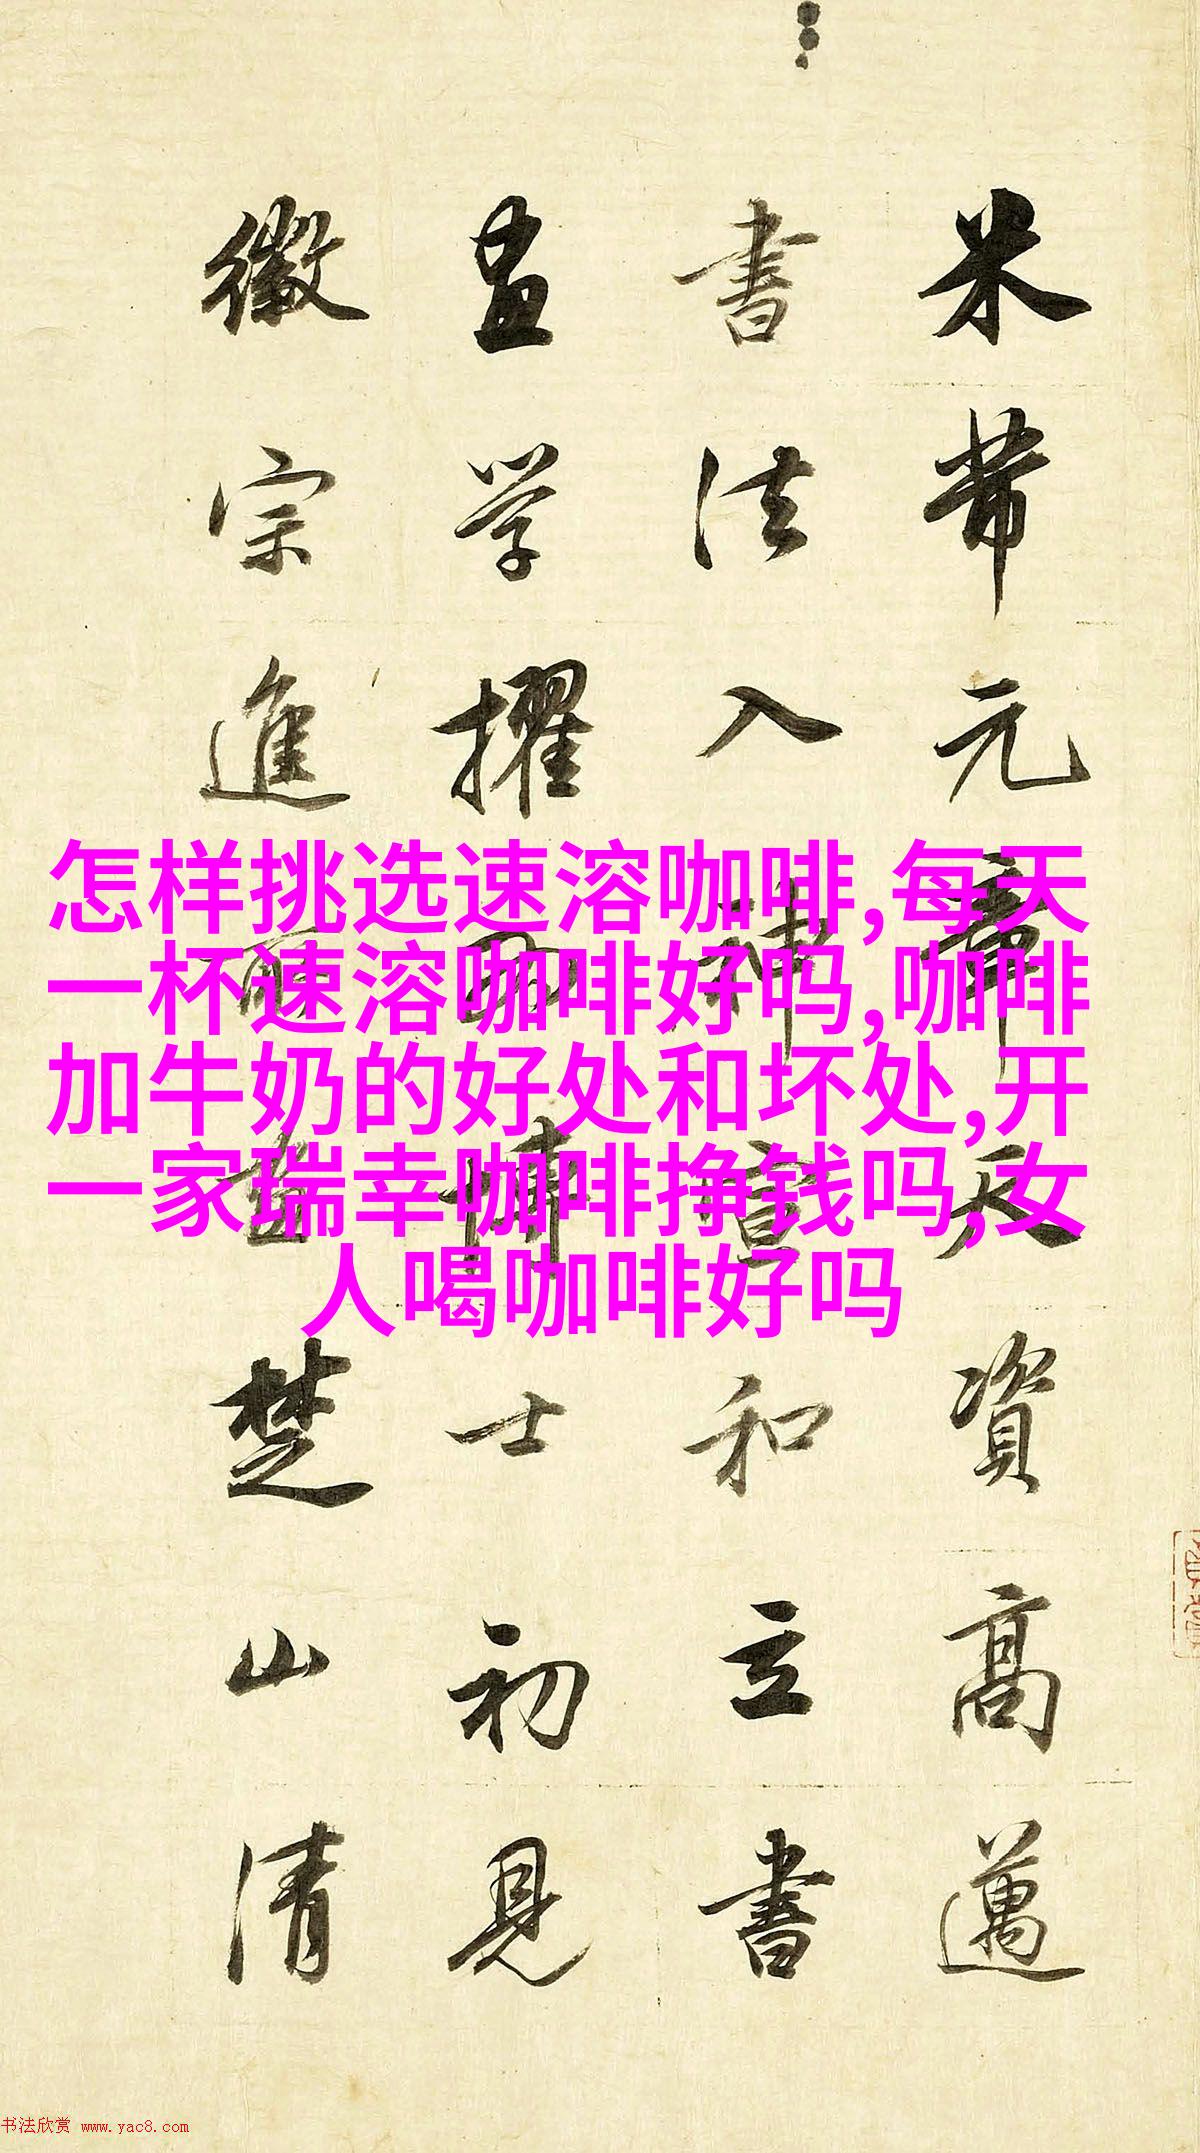 米芾元章天資高邁
書法入神宣和立書
畫學擢為博士初見
徽宗進所畫楚山清
怎样挑选速溶咖啡,每天
一杯速溶咖啡好吗,咖啡
加牛奶的好处和坏处,开
一家瑞幸咖啡挣钱吗,女
人喝咖啡好吗
书法欣赏 www.yac8.com